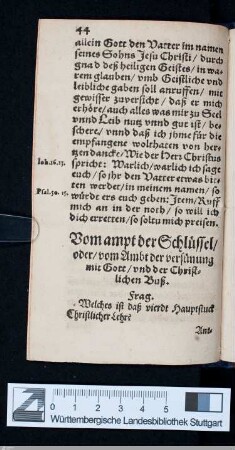 44
allein Gott den Vatter im namen
seines Sohns Jesu Christi / durch
gnad deß heiligen Geistes / in wa-
rem glauben / vmb Geistliche vnd
leibliche gaben soll anruffen / mit
gewisser zuversicht / daß er mich
erhöre / auch alles was mir zu Seel
vnnd Leib nutz vnnd gut ist / be-
schere / vnnd daß ich ihme für die
empfangene wolthaten von her-
tzen dancke / Wie der Herr Christus
Joh.16.23. spricht: Warlich / warlich ich sage
euch / so ihr den Vatter etwas bit-
ten werdet / in meinem namen / so
Psal.50.15. würdt ers euch geben: Item / Ruff
mich an in der noth / so will ich
dich erretten / so soltu mich preisen.
Vom ampt der Schlüssel /
oder / vom Ambt der versünung
mit Gott / vnd der Christ-
lichen Buß.
Frag.
Welches ist daß vierdt Hauptstuck
Christlicher Lehre?
Ant-
0 1 2 3 4 5
Württembergische Landesbibliothek Stuttgart